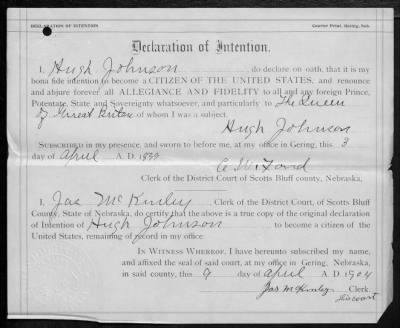 DECLARATION OF INTENTION. Courier Print, Gering, Neb.
Declaration of Intention.
I, Hugh Johnson do declare on oath, that it is my
bona fide intention to become a CITIZEN OF THE UNITED STATES, and renounce
and abjure forever all ALLEGIANCE AND FIDELITY to all and any foreign Prince,
Potentate, State and Sovereignty whatsoever, and particularly to The Queen
of Great Britain of whom I was a subject.
Hugh Johnson
SUBSCRIBED in my presence, and sworn to before me, at my office in Gering, this 3
day of April A. D.
Clerk of the District Court of Scotts Bluff county, Nebraska,
I, Jas McKinley, Clerk of the District Court, of Scotts Bluff
County, State of Nebraska, do certify that the above is a true copy of the original declaration
of Intention of Hugh Johnson to become a citizen of the
United States, remaining of record in my office.
IN WITNESS WHEREOF, I have hereunto subscribed my name,
and affixed the seal of said court, at my office in Gering, Nebraska,
in said county, this 9 day of April A. D. 1904
Jas McKinley Clerk.
Dis court